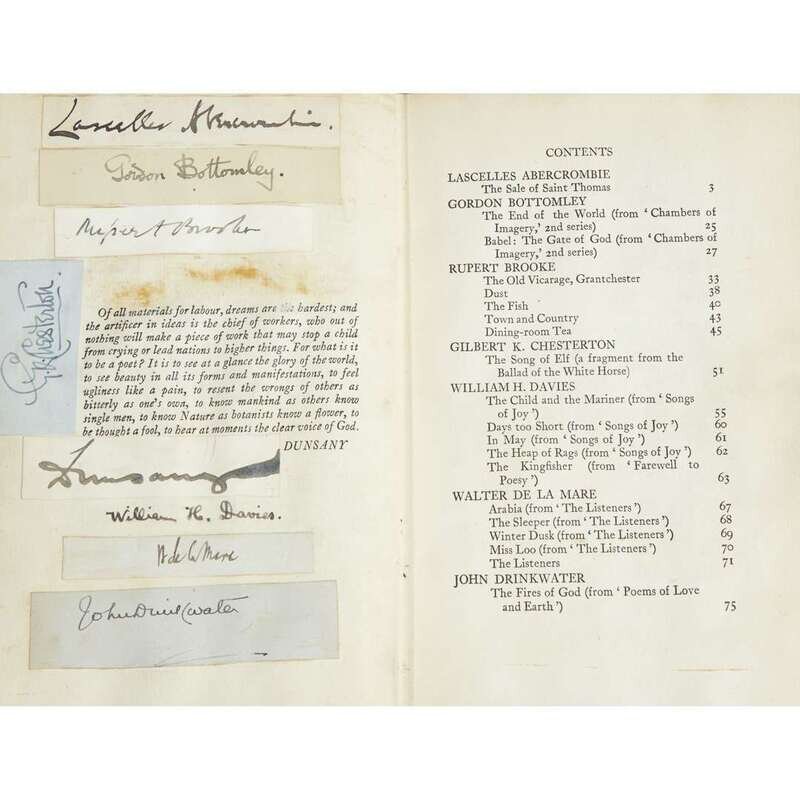 Lascelles Abercrombie.
Gordon Bottomley.
Rupert Brooke
G.K. Chesterton.
Of all materials for labour, dreams are the hardest; and
the artificer in ideas is the chief of workers, who out of
nothing will make a piece of work that may stop a child
from crying or lead nations to higher things. For what is it
to be a poet? It is to see at a glance the glory of the world,
to see beauty in all its forms and manifestations, to feel
ugliness like a pain, to resent the wrongs of others as
bitterly as one's own, to know mankind as others know
single men, to know Nature as botanists know a flower, to
be thought a fool, to hear at moments the clear voice of God.
DUNSANY
Dunsany
William H. Davies.
W de la Mare
John Drinkwater
CONTENTS
LASCELLES ABERCROMBIE
The Sale of Saint Thomas 3
GORDON BOTTOMLEY
The End of the World (from ‘Chambers of
Imagery,’ 2nd series) 25
Babel: The Gate of God (from ‘Chambers of
Imagery,’ 2nd series) 27
RUPERT BROOKE
The Old Vicarage, Grantchester 33
Dust 38
The Fish 40
Town and Country 43
Dining-room Tea 45
GILBERT K. CHESTERTON
The Song of Elf (a fragment from the
Ballad of the White Horse) 51
WILLIAM H. DAVIES
The Child and the Mariner (from ‘Songs
of Joy’) 55
Days too Short (from ‘Songs of Joy’) 60
In May (from ‘Songs of Joy’) 61
The Heap of Rags (from ‘Songs of Joy’) 62
The Kingfisher (from ‘Farewell to
Poesy’) 63
WALTER DE LA MARE
Arabia (from ‘The Listeners’) 67
The Sleeper (from ‘The Listeners’) 68
Winter Dusk (from ‘The Listeners’) 69
Miss Loo (from ‘The Listeners’) 70
The Listeners 71
JOHN DRINKWATER
The Fires of God (from ‘Poems of Love
and Earth’) 75